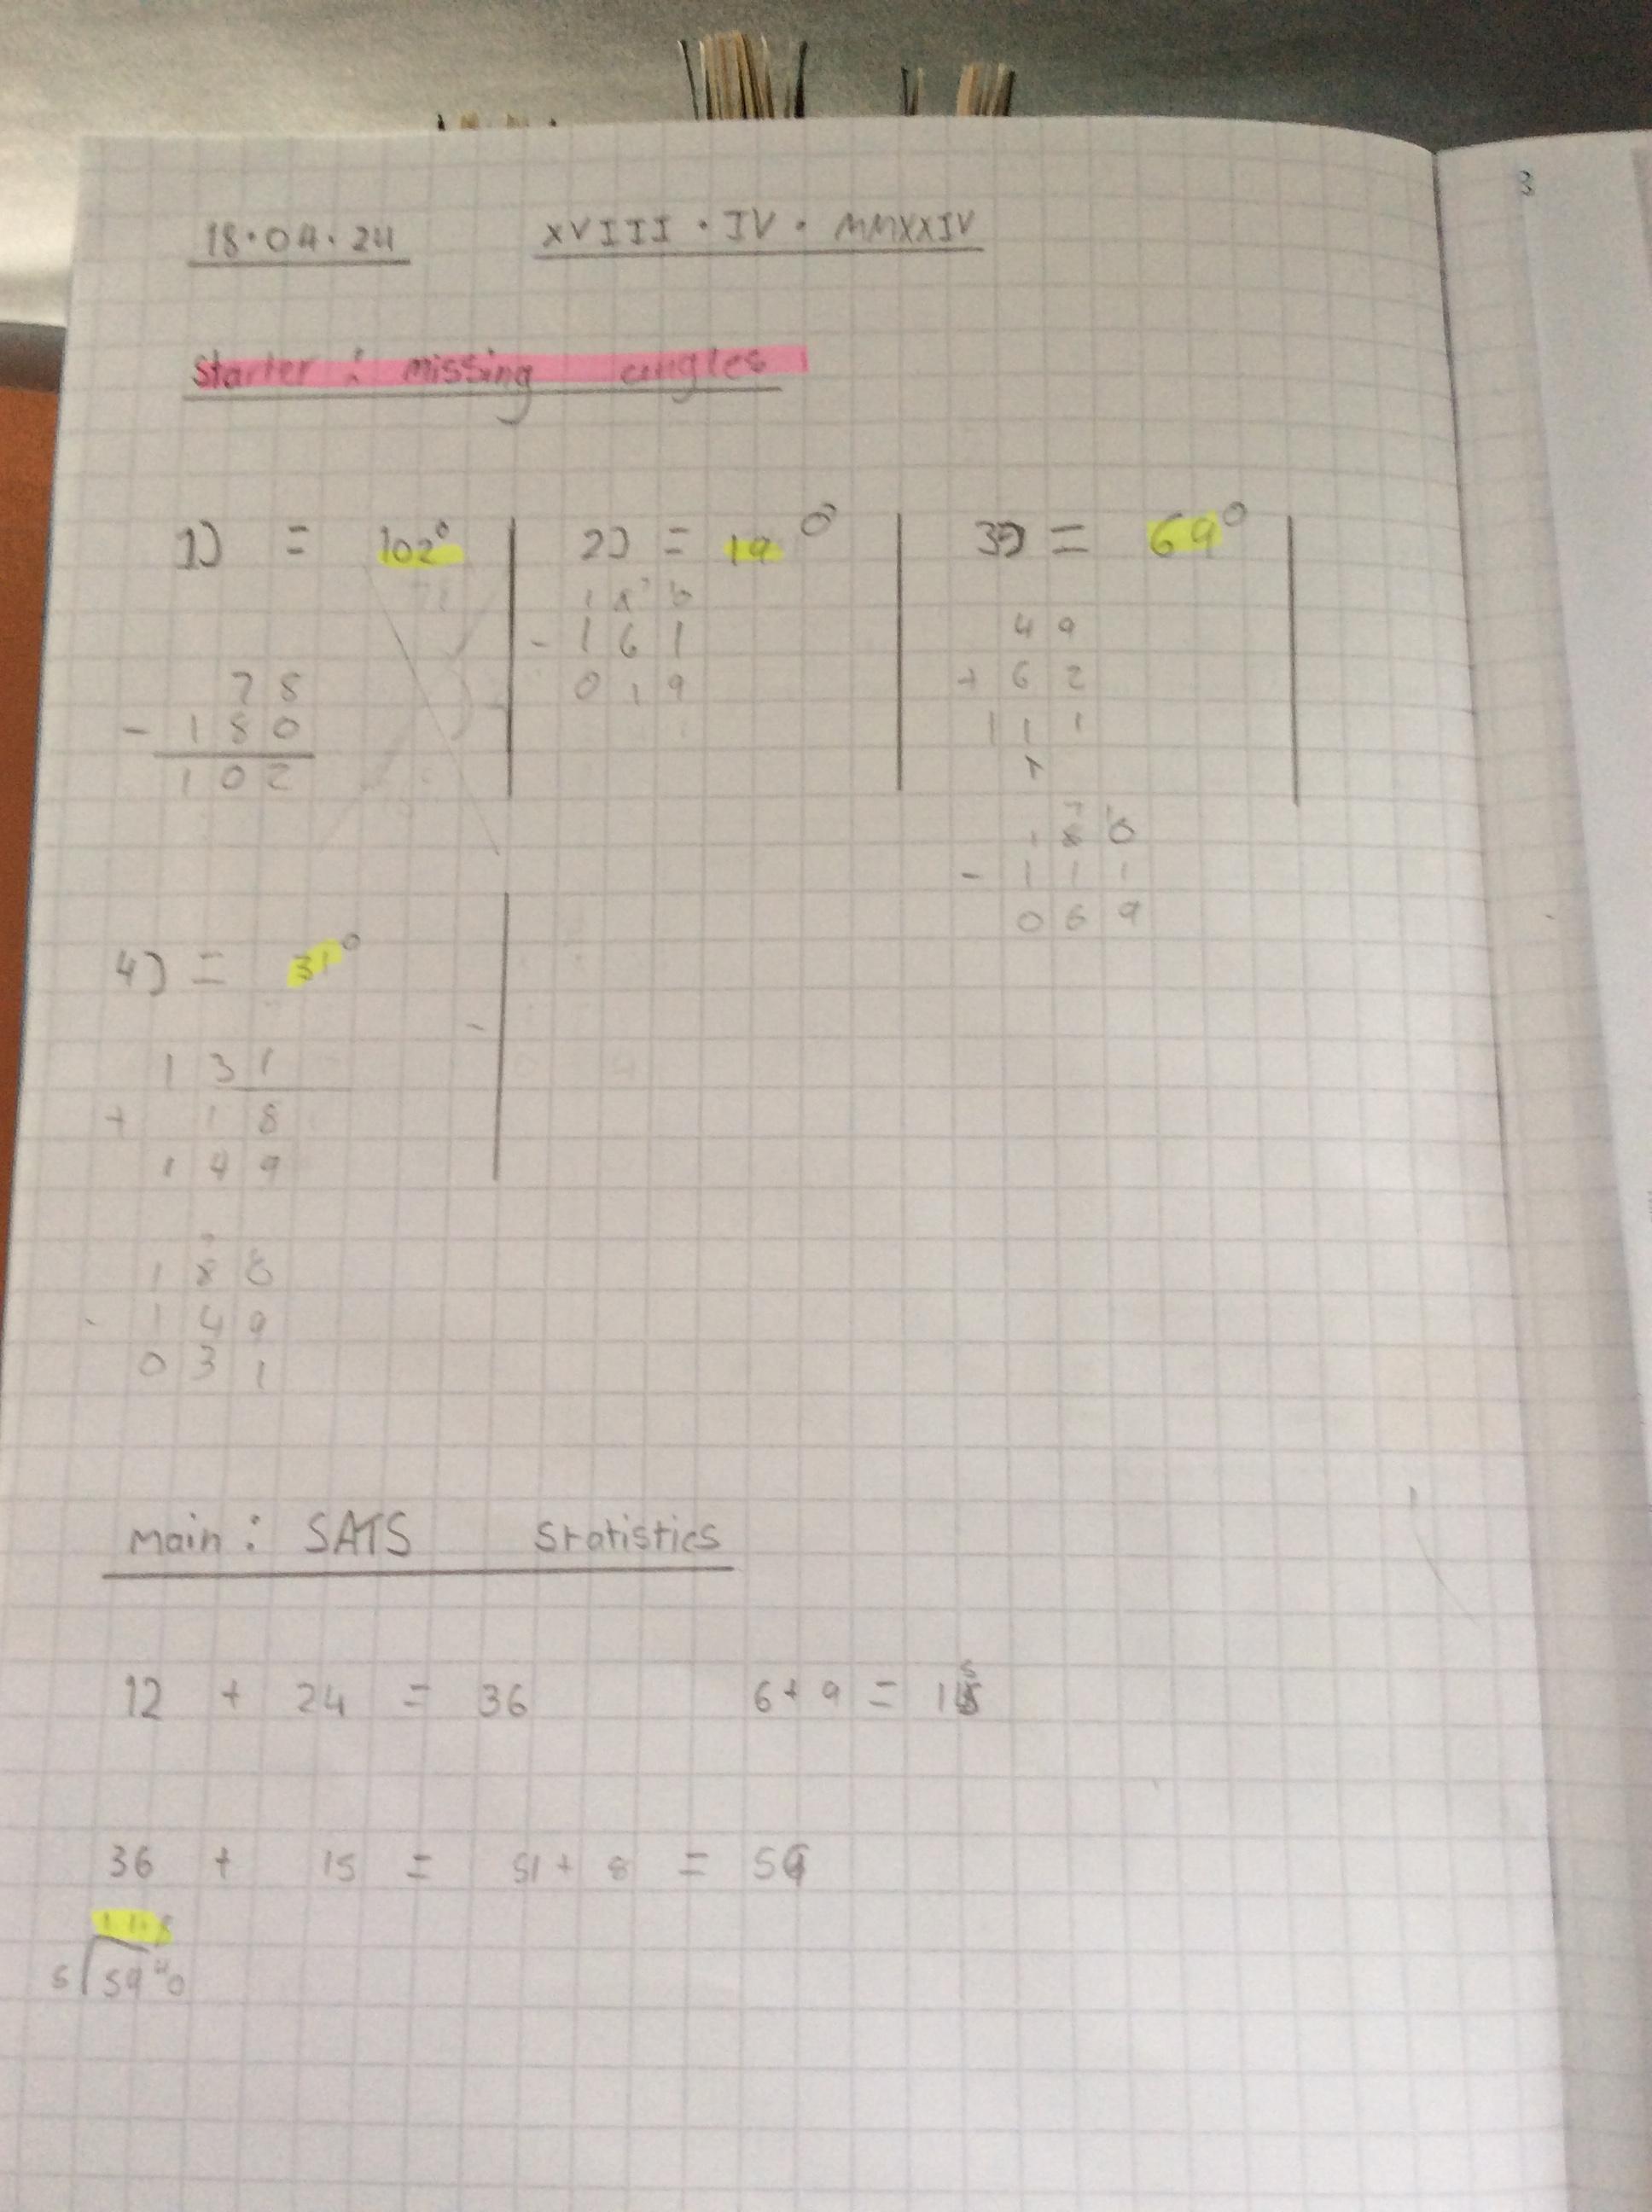 3
18.04.24 XVIII . IV . MMXXIV
Starter : missing angles
1) = 102°
78
- 180
102
2) = 19°
180
- 161
019
3) = 69°
49
+ 62
111
1
180
- 111
069
4) = 31°
131
+ 18
149
180
- 149
031
main : SATS Statistics
12 + 24 = 36 6 + 9 = 15
36 + 15 = 51 + 8 = 59
5 59 40